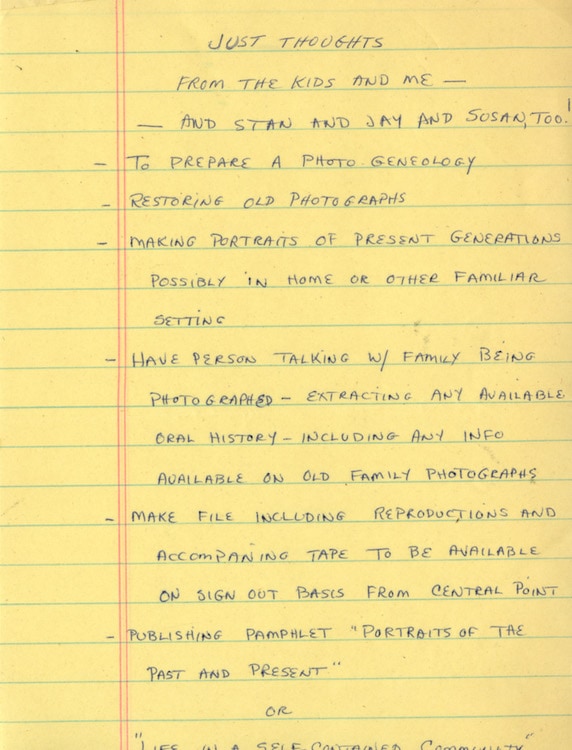 JUST THOUGHTS
FROM THE KIDS AND ME —
— AND STAN AND JAY AND SUSAN, TOO!
— TO PREPARE A PHOTO GENEOLOGY
— RESTORING OLD PHOTOGRAPHS
— MAKING PORTRAITS OF PRESENT GENERATIONS
POSSIBLY IN HOME OR OTHER FAMILIAR
SETTING
— HAVE PERSON TALKING W/ FAMILY BEING
PHOTOGRAPHED — EXTRACTING ANY AVAILABLE
ORAL HISTORY — INCLUDING ANY INFO
AVAILABLE ON OLD FAMILY PHOTOGRAPHS
— MAKE FILE INCLUDING REPRODUCTIONS AND
ACCOMPANING TAPE TO BE AVAILABLE
ON SIGN OUT BASIS FROM CENTRAL POINT
— PUBLISHING PAMPHLET "PORTRAITS OF THE
PAST AND PRESENT"
OR
"LIFE IN A SELF-CONTAINED COMMUNITY"